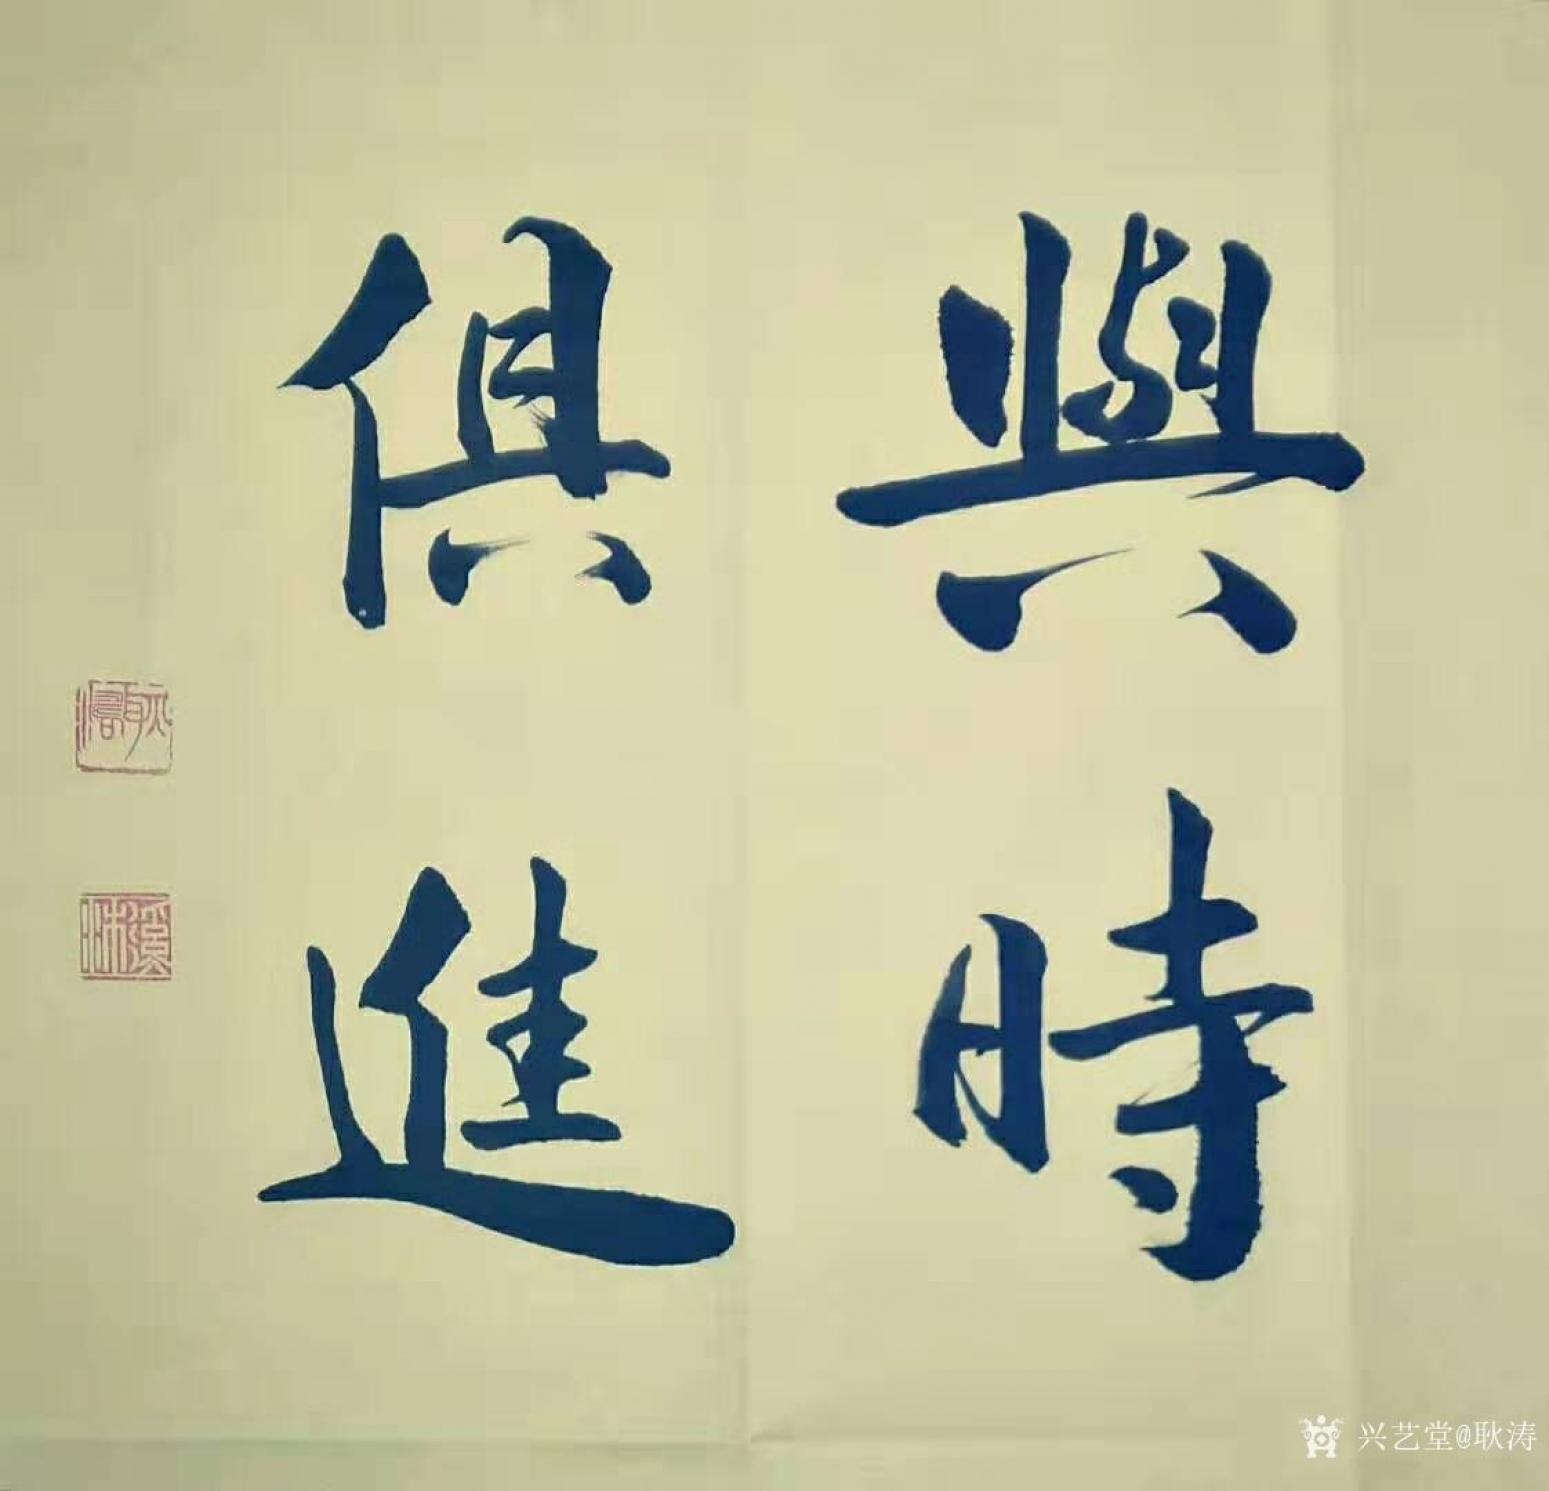 與時
俱進
耿濤
兴艺堂@耿涛